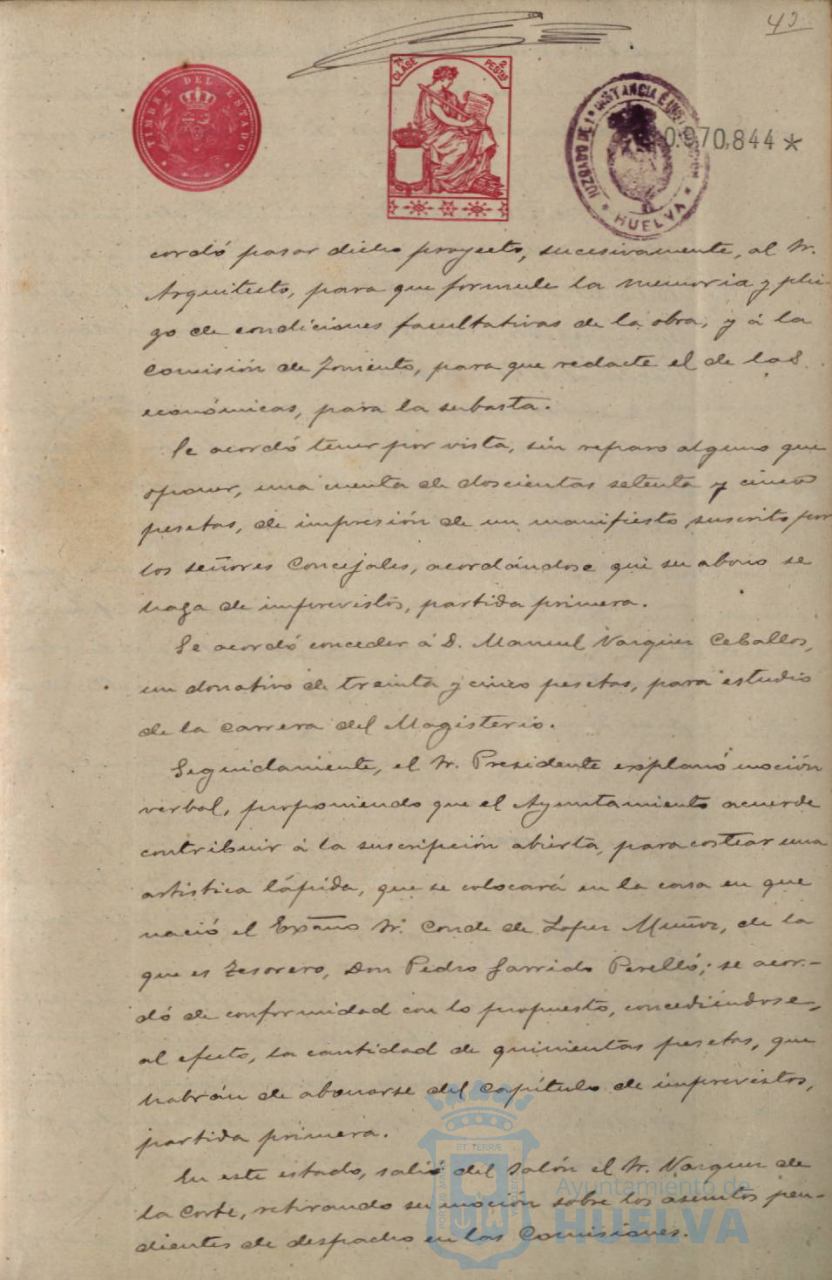 42
TIMBRE DEL ESTADO
7ª CLASE 2 PESTAS
JUZGADO DE 1ª INSTANCIA É INSTRUCCION
HUELVA
0.970,844 *
cordó pasar dicho proyecto, sucesivamente, al Sr.
Arquitecto, para que formule la memoria y plie-
go de condiciones facultativas de la obra, y á la
Comisión de Fomento, para que redacte el de las
económicas, para la subasta.
Se acordó tener por vista, sin reparo alguno que
oponer, una cuenta de doscientas setenta y cinco
pesetas, de impresión de un manifiesto suscrito por
los señores Concejales, acordándose que su abono se
haga de imprevistos, partida primera.
Se acordó conceder á D. Manuel Vazquez Ceballos,
un donativo de treinta y cinco pesetas, para estudio
de la carrera del Magisterio.
Seguidamente, el Sr. Presidente explanó moción
verbal, proponiendo que el Ayuntamiento acuerde
contribuir á la suscripción abierta, para costear una
artistica lápida, que se colocará en la casa en que
nació el Excmo Sr. Conde de Lopez Muñoz, de la
que es Tesorero, Don Pedro Garrido Perelló; se acor-
dó de conformidad con lo propuesto, concediéndose,
al efecto, la cantidad de quinientas pesetas, que
habrán de abonarse del Capítulo de imprevistos,
partida primera.
En este estado, salió del salón el Sr. Vazquez de
la Corte, retirando su moción sobre los asuntos pen-
dientes de despacho en las Comisiones.
Ayuntamiento de
HUELVA